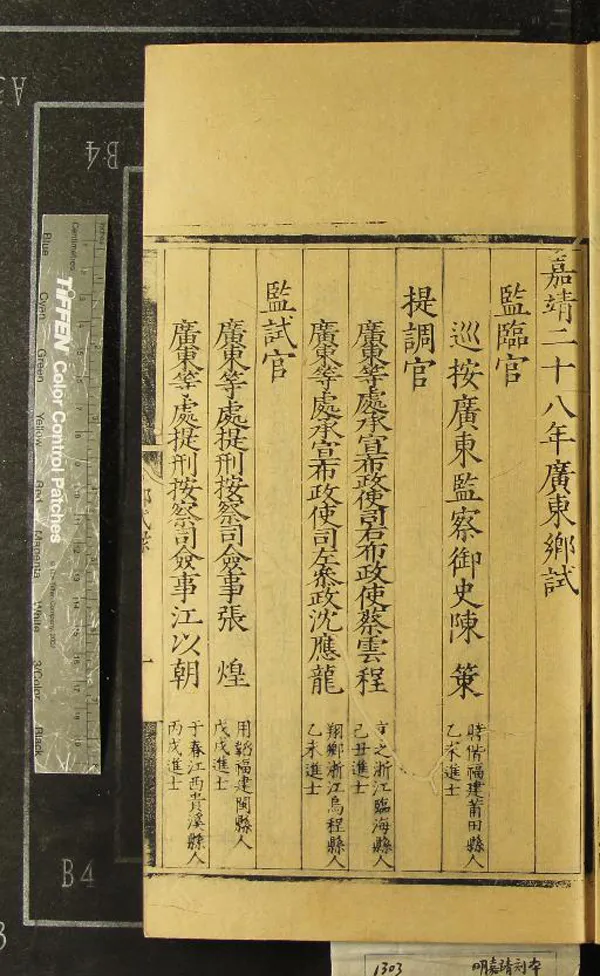 嘉靖二十八年廣東鄉試
監臨官
巡按廣東監察御史陳 策
時偕福建莆田縣人
乙未進士
提調官
廣東等處承宣布政使司右布政使蔡雲程
亨之浙江臨海縣人
己丑進士
廣東等處承宣布政使司左叅政沈應龍
翔鄉浙江烏程縣人
乙未進士
監試官
廣東等處提刑按察司僉事張 煌
用韜福建閩縣人
戊戌進士
廣東等處提刑按察司僉事江以朝
于春江西貴溪縣人
丙戌進士
A3
B4
B4
inches
Centimetres
TIFFEN Color Control Patches
© The Tiffen Company, 2007
Blue
Cyan
Green
Yellow
Red
Magenta
White
3/Color
Black
1303
明嘉靖刻本